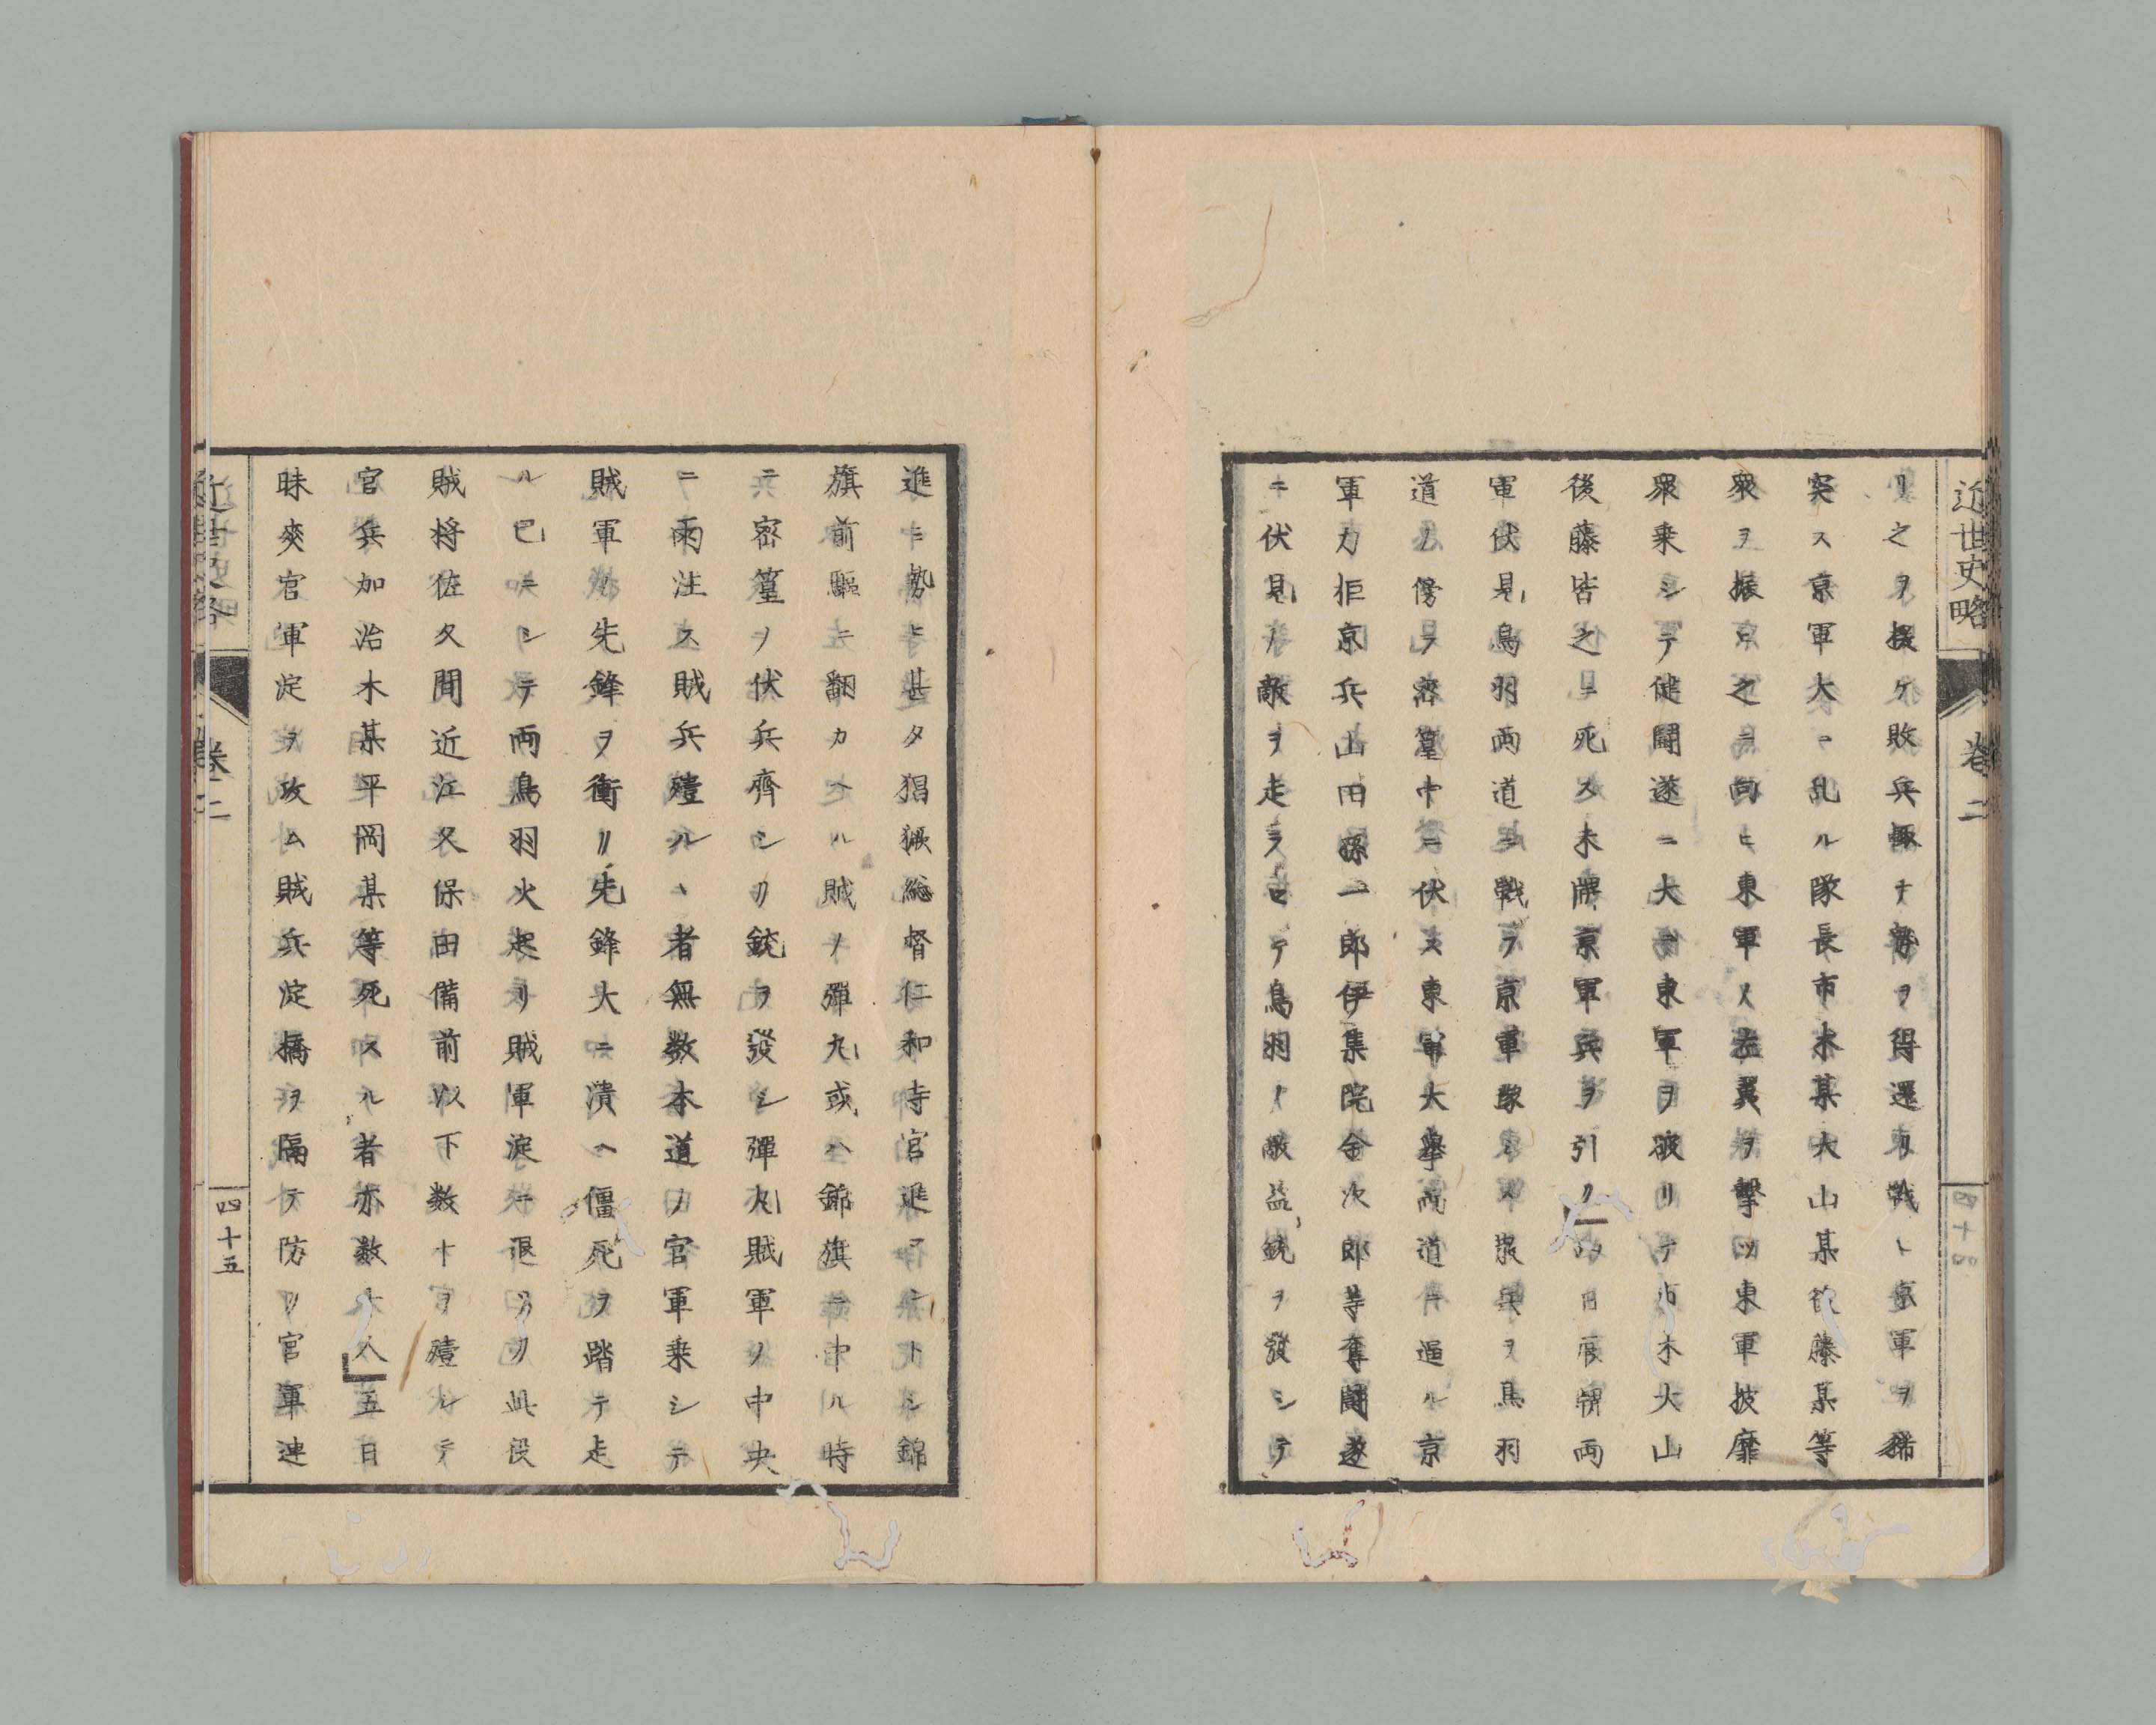 近世史略 卷二
リ之ヲ援ケ敗兵輙チ勢ヲ得還リ戰ト京軍ヲ
突ス京軍大ニ乱ル隊長市来某大山某後藤某等
衆ヲ振ヒ之ニ向ヒ東軍ノ左翼ヲ擊ツ東軍披靡
衆乗シテ健鬪遂ニ大ニ東軍ヲ破リテ市木大山
後藤皆之ニ死ス未牌京軍兵ヲ引ク 四日辰牌両
軍伏見鳥羽両道ニ戰フ京軍衆ヲ鳥羽
道ノ傍ラ密篁中ニ伏ス東軍大擧両道ニ逼ル京
軍力拒京兵山田孫一郎伊集院金次郎等奮鬪遂
ニ伏見ノ敵ヲ走ラセテ鳥羽ノ敵益銃ヲ發シテ
進ミ勢ヒ甚タ猖獗総督仁和寺宮進マントシ錦
旗前驅ニ翻カヘル賊ノ彈丸或ハ錦旗ニ中ル時
ニ密篁ノ伏兵齊シク銃ヲ發シ彈丸賊軍ノ中央
ニ雨注ス賊兵殪ルヽ者無数本道ノ官軍乗シテ
賊軍ノ先鋒ヲ衝ク先鋒大ニ潰ヘ僵死ヲ踏テ走
ル已ニシテ両鳥羽火起リ賊軍淀ニ退ク此役
賊将佐久間近江久保田備前以下数十ヲ殪シテ
官兵加治木某平岡某等死スル者亦数十人 五日
昧爽官軍淀ヲ攻ム賊兵淀橋ヲ隔テ防ク官軍連
近世史略 卷二 四十五